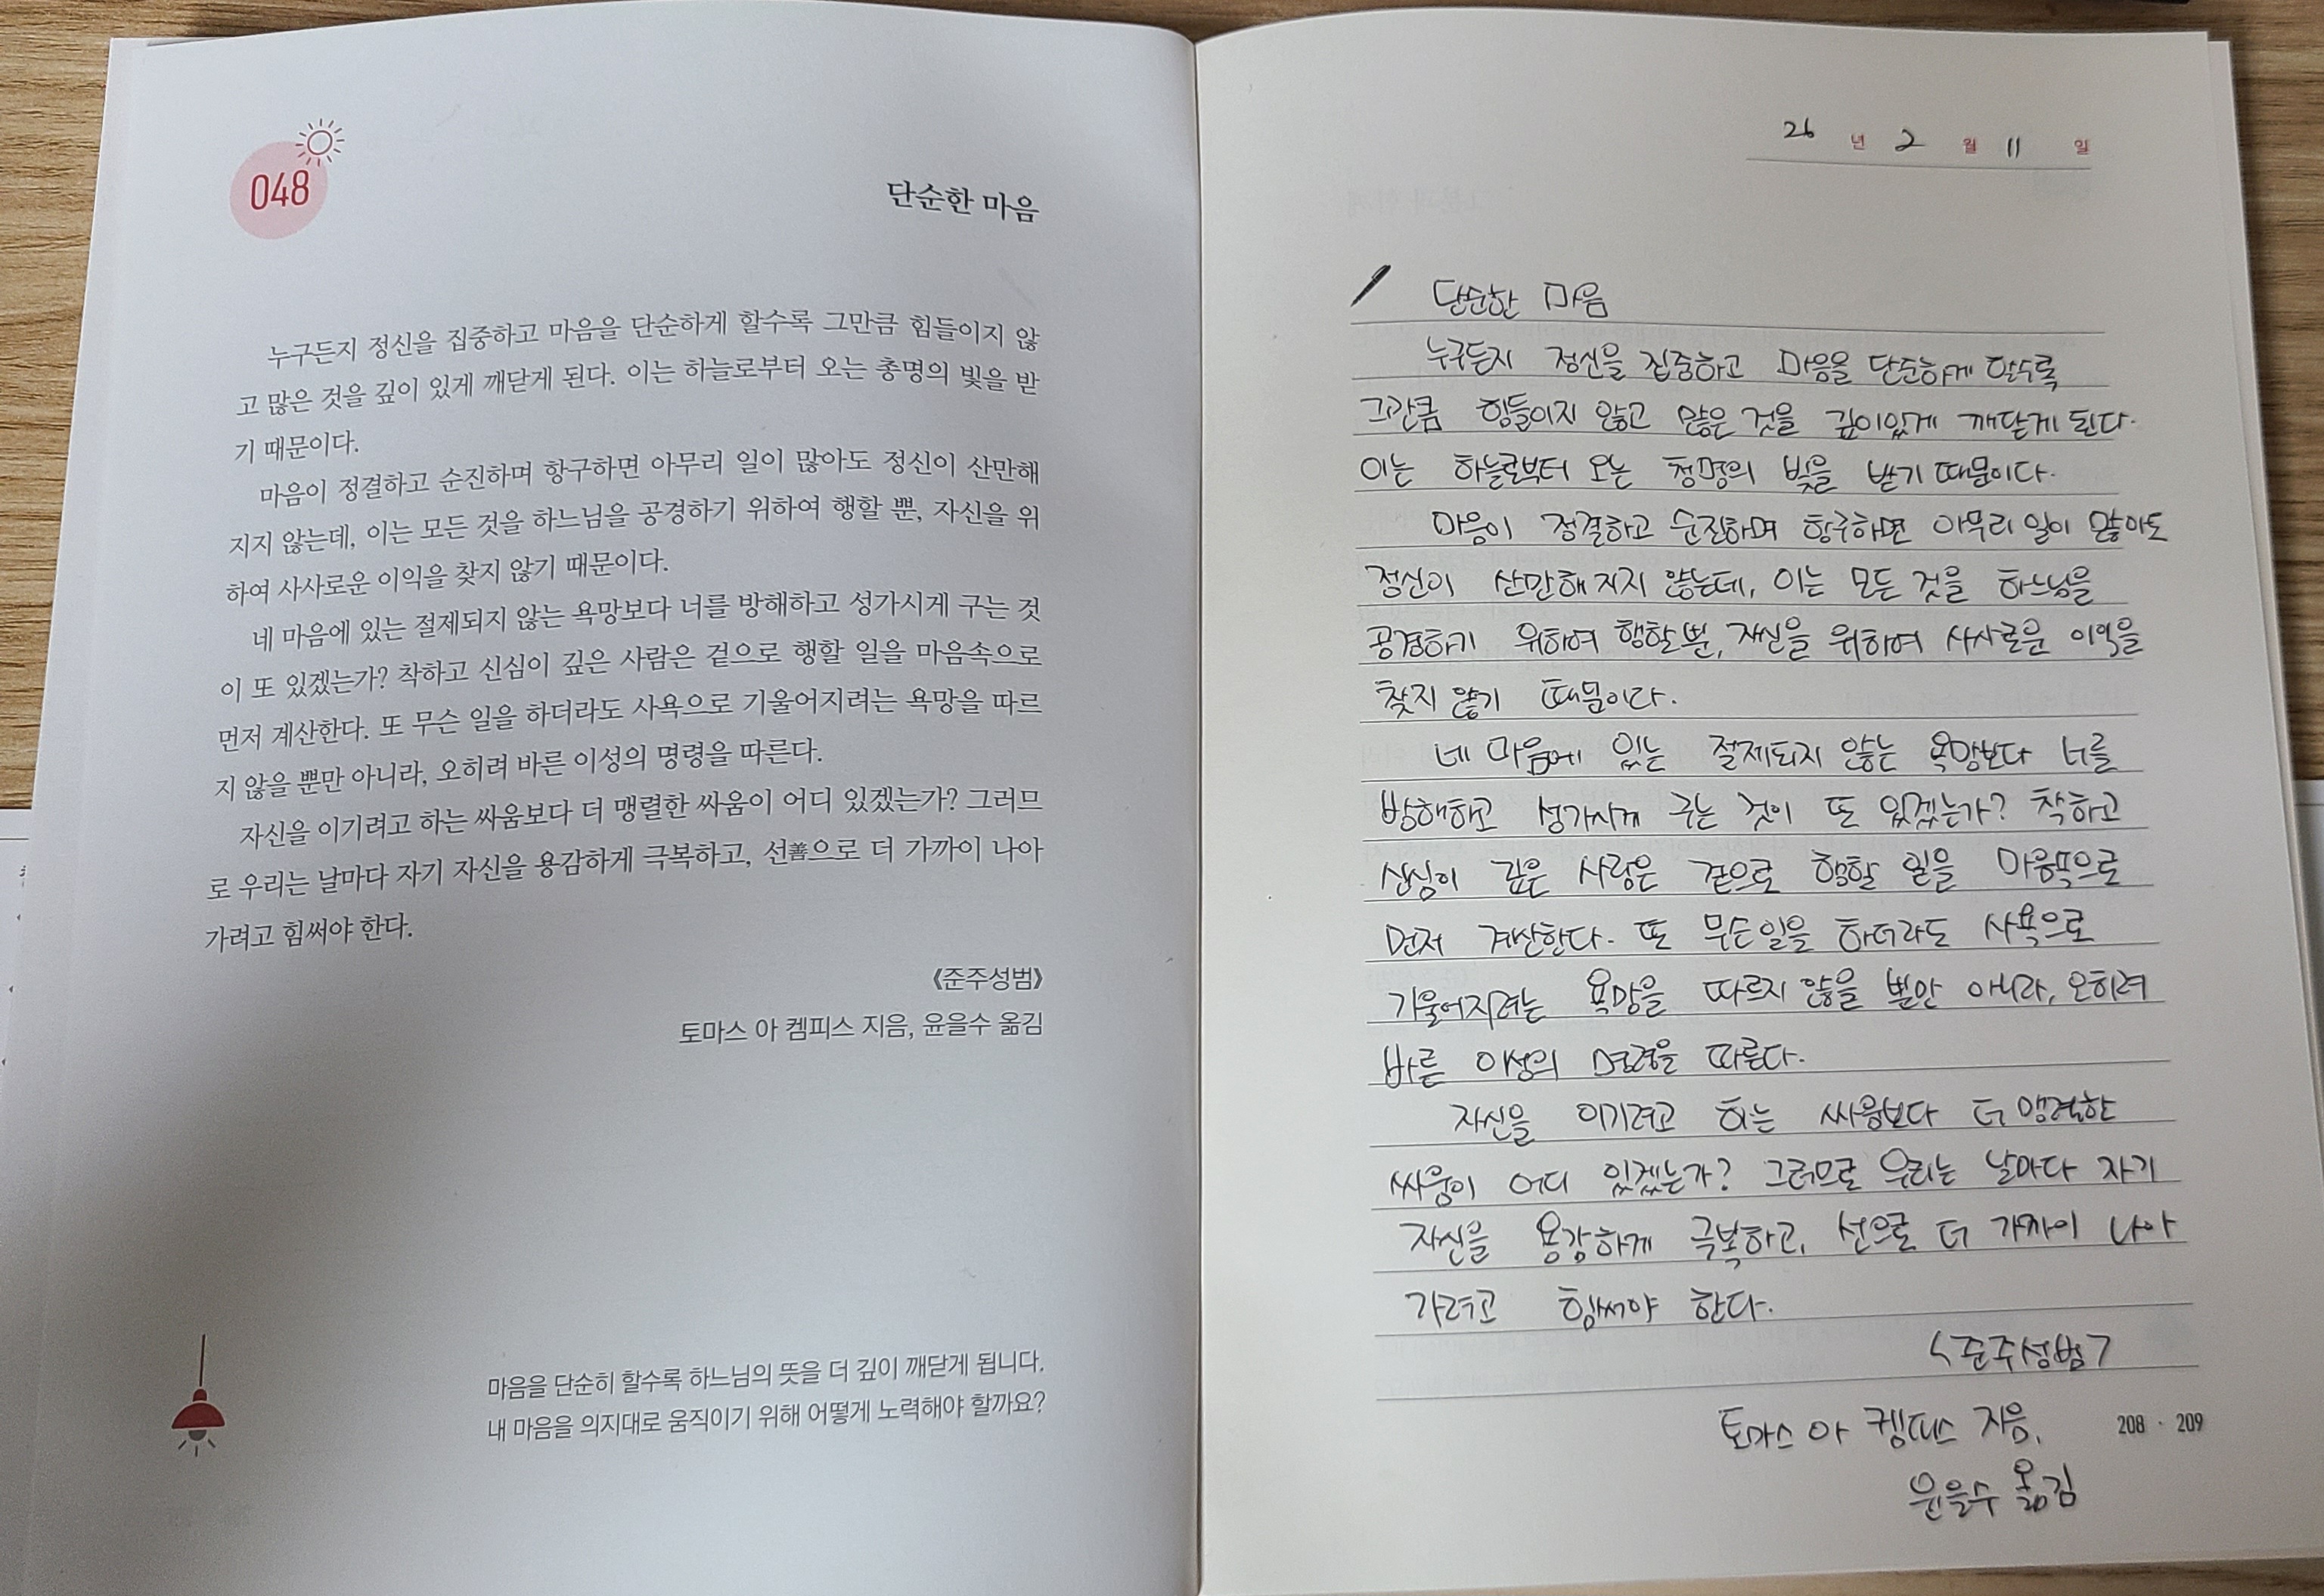 048
단순한 마음
누구든지 정신을 집중하고 마음을 단순하게 할수록 그만큼 힘들이지 않
고 많은 것을 깊이 있게 깨닫게 된다. 이는 하늘로부터 오는 총명의 빛을 받
기 때문이다.
마음이 정결하고 순진하며 항구하면 아무리 일이 많아도 정신이 산만해
지지 않는데, 이는 모든 것을 하느님을 공경하기 위하여 행할 뿐, 자신을 위
하여 사사로운 이익을 찾지 않기 때문이다.
네 마음에 있는 절제되지 않는 욕망보다 너를 방해하고 성가시게 구는 것
이 또 있겠는가? 착하고 신심이 깊은 사람은 겉으로 행할 일을 마음속으로
먼저 계산한다. 또 무슨 일을 하더라도 사욕으로 기울어지려는 욕망을 따르
지 않을 뿐만 아니라, 오히려 바른 이성의 명령을 따른다.
자신을 이기려고 하는 싸움보다 더 맹렬한 싸움이 어디 있겠는가? 그러므
로 우리는 날마다 자기 자신을 용감하게 극복하고, 선善으로 더 가까이 나아
가려고 힘써야 한다.
《준주성범》
토마스 아 켐피스 지음, 윤을수 옮김
마음을 단순히 할수록 하느님의 뜻을 더 깊이 깨닫게 됩니다.
내 마음을 의지대로 움직이기 위해 어떻게 노력해야 할까요?
26 년 2 월 11 일
단순한 마음
누구든지 정신을 집중하고 마음을 단순하게 할수록
그만큼 힘들이지 않고 많은 것을 깊이있게 깨닫게 된다.
이는 하늘로부터 오는 청명의 빛을 받기 때문이다.
마음이 정결하고 순진하며 항구하면 아무리 일이 많아도
정신이 산만해 지지 않는데, 이는 모든 것을 하느님을
공경하기 위하여 행할 뿐, 자신을 위하여 사사로운 이익을
찾지 않기 때문이다.
네 마음에 있는 절제되지 않는 욕망보다 너를
방해하고 성가시게 구는 것이 또 있겠는가? 착하고
신심이 깊은 사람은 겉으로 행할 일을 마음속으로
먼저 계산한다. 또 무슨일을 하더라도 사욕으로
기울어지려는 욕망을 따르지 않을 뿐만 아니라, 오히려
바른 이성의 명령을 따른다.
자신을 이기려고 하는 싸움보다 더 맹렬한
싸움이 어디 있겠는가? 그러므로 우리는 날마다 자기
자신을 용감하게 극복하고, 선으로 더 가까이 나아
가려고 힘써야 한다.
<준주성범>
토마스 아 켐피스 지음,
윤을수 옮김
208 · 209